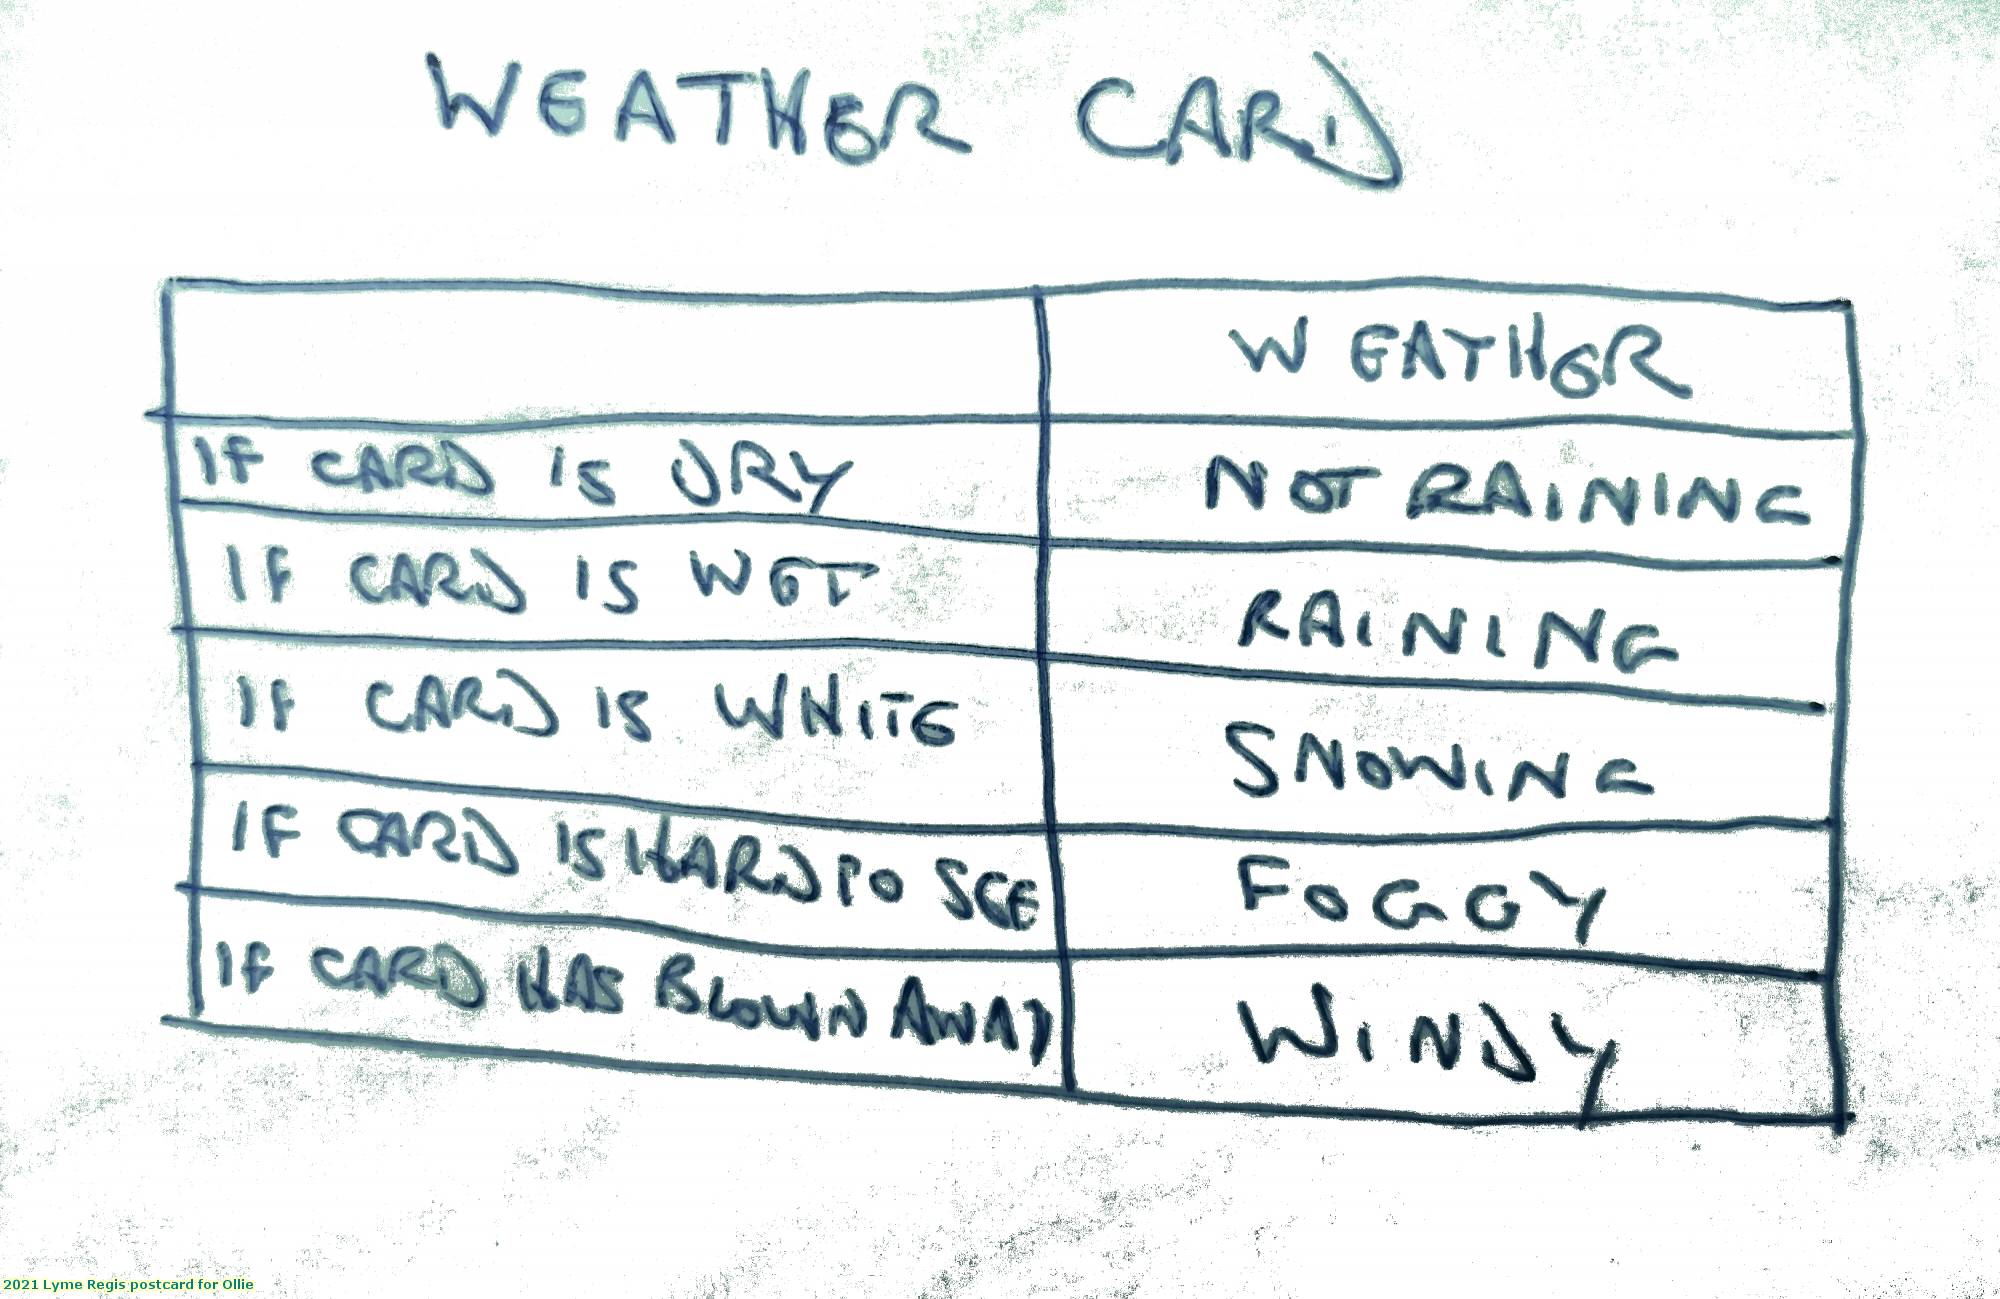 WEATHER CARD
WEATHER
IF CARD IS DRY NOT RAINING
IF CARD IS WET RAINING
IF CARD IS WHITE SNOWING
IF CARD IS HARD TO SEE FOGGY
IF CARD HAS BLOWN AWAY WINDY
2021 Lyme Regis postcard for Ollie